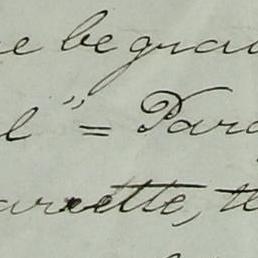 e be gra
l" = Para
arette, th